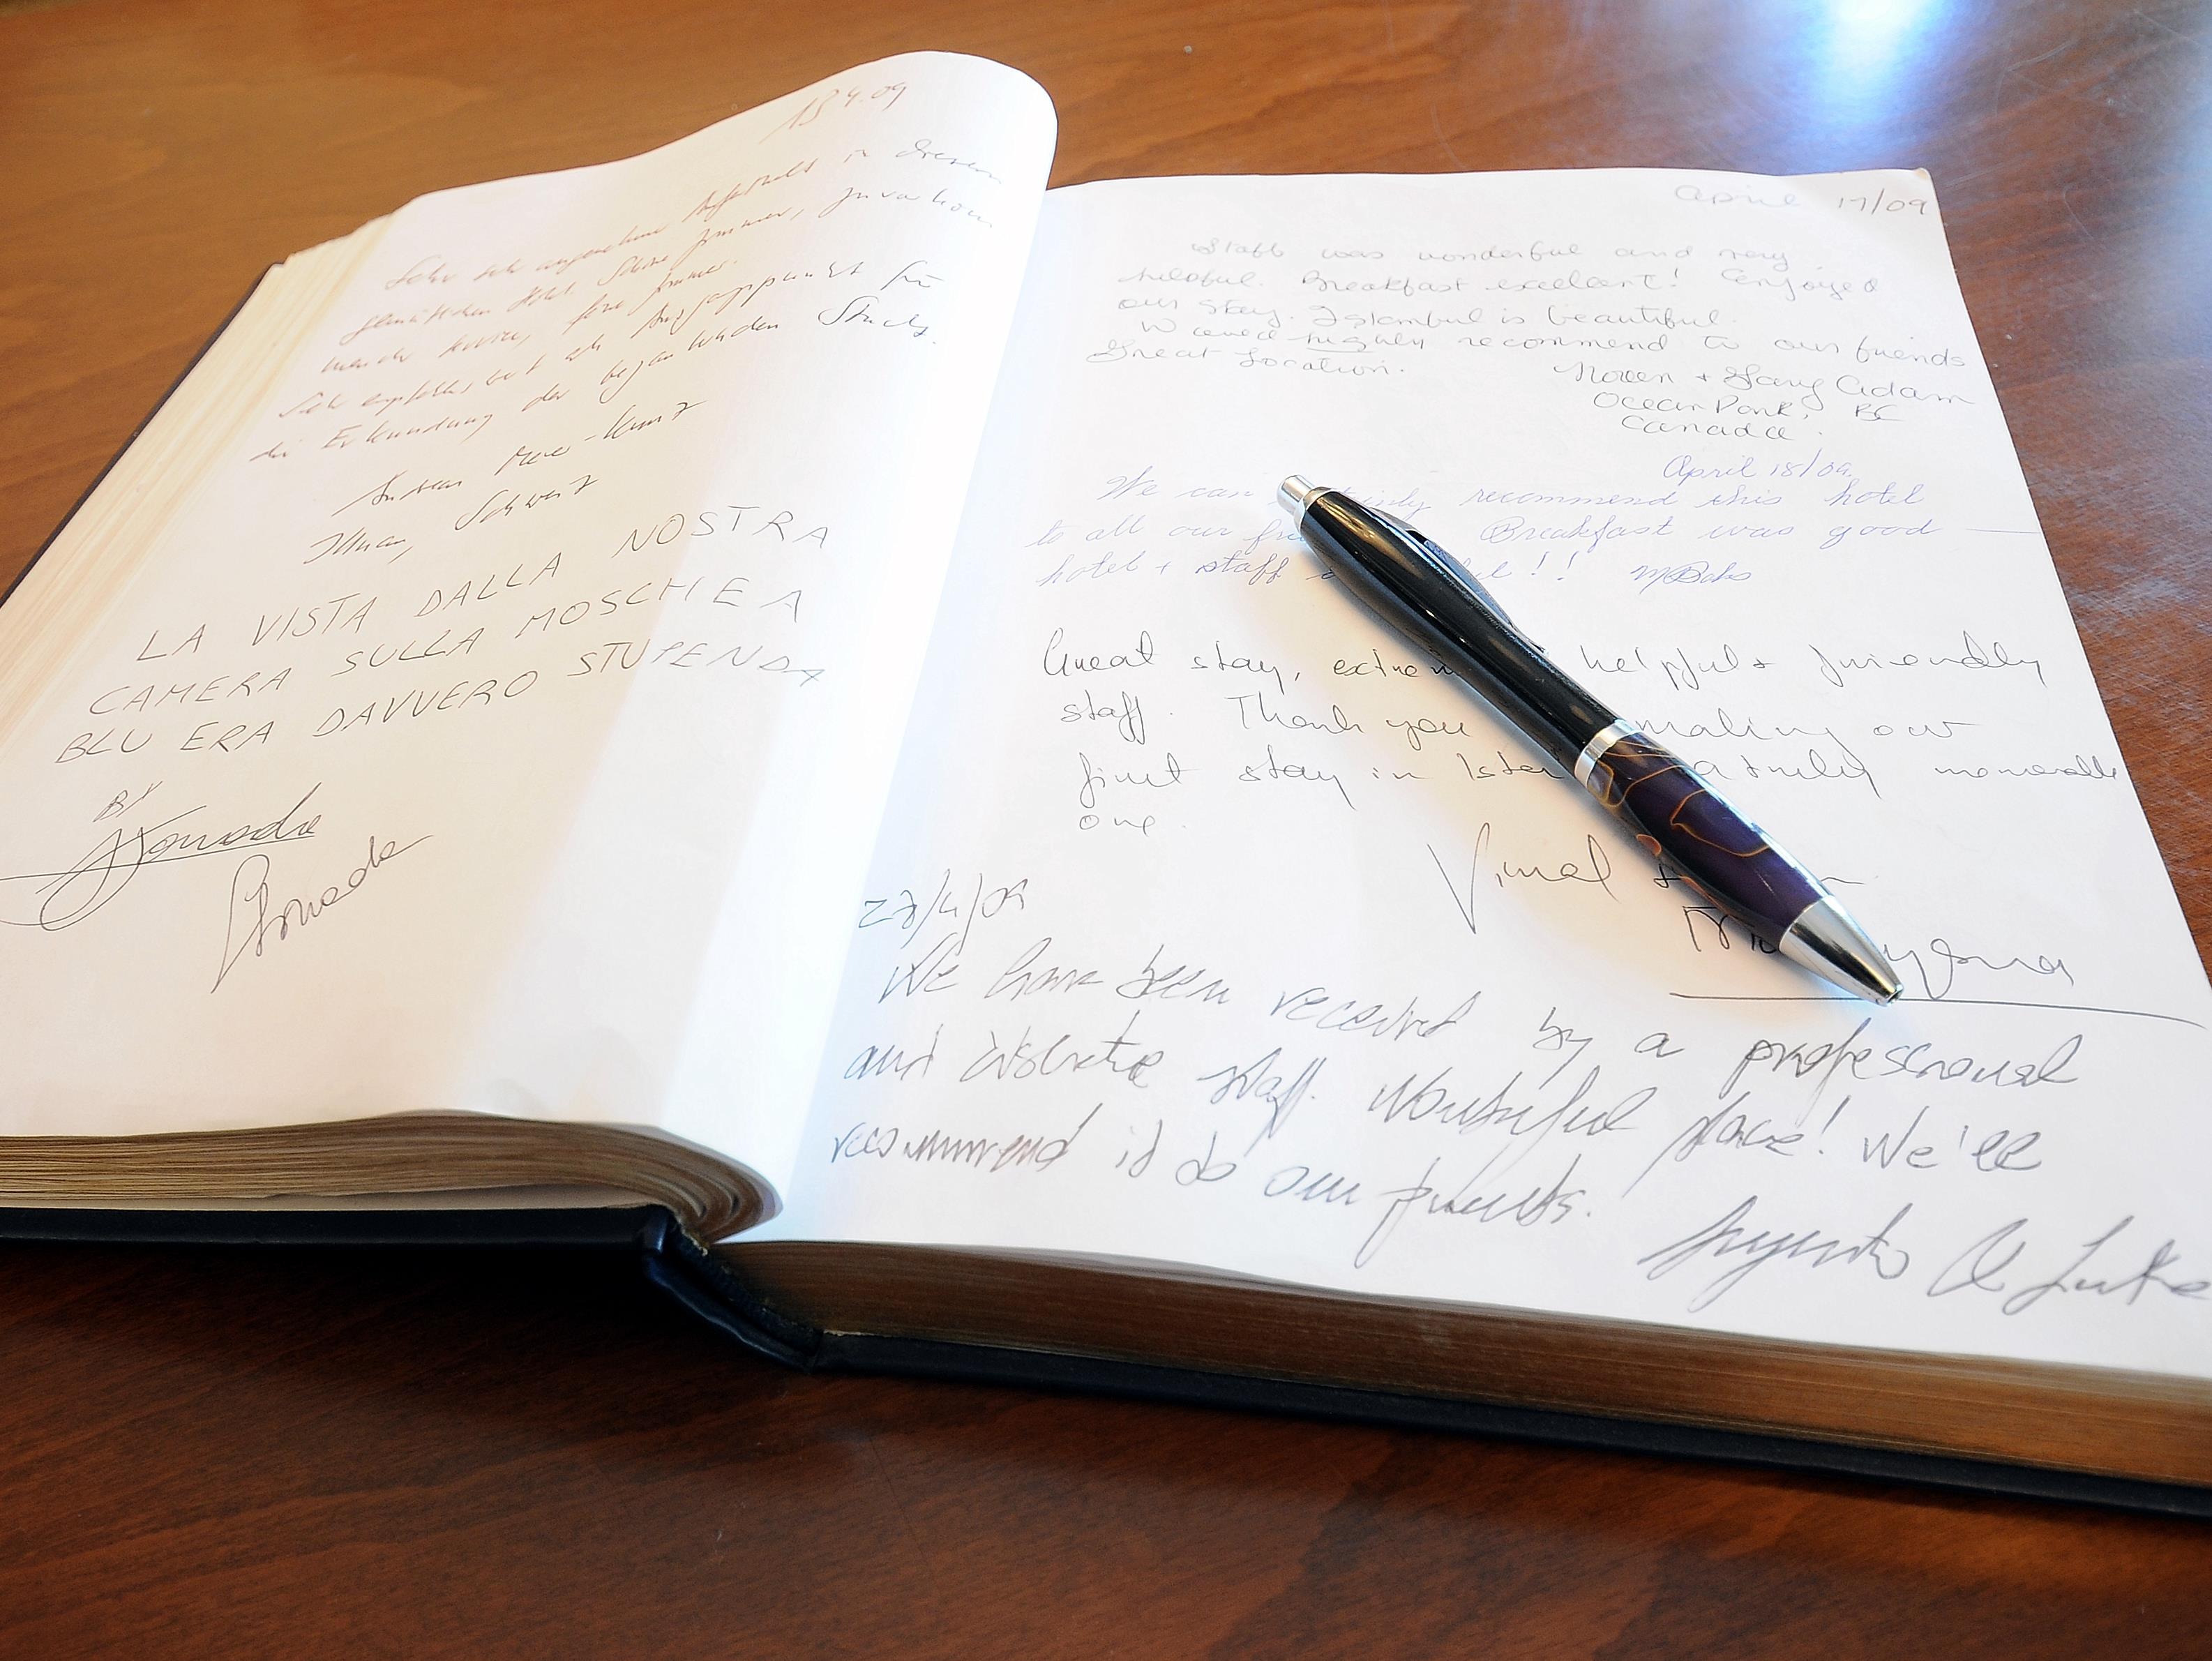 13.4.09
Sehr sehr angenehmer Aufenthalt in diesem
gemütlichen Hotel. Schöne Zimmer, zuvorkom-
mender Service, feine Zimmer.
Sehr empfehlenswert als Ausgangspunkt für
die Erkundung der Stadt.
Schweiz
LA VISTA DALLA NOSTRA
CAMERA SULLA MOSCHEA
BLU ERA DAVVERO STUPENDA
BY
April 17/09
Staff was wonderful and very
helpful. Breakfast excellent! Enjoyed
our stay. Istanbul is beautiful.
Would highly recommend to our friends
Great Location.
Noreen + Gary Adam
Ocean Park, BC
Canada.
April 18/09
We can recommend this hotel
to all our Breakfast was good —
hotel + staff !!
Great stay, helpful + friendly
staff. Thank you making our
first stay in a truly memorable
one.
Vimal
27/4/09
We have been received by a professional
and discrete staff. Wonderful place! We'll
recommend it to our friends.